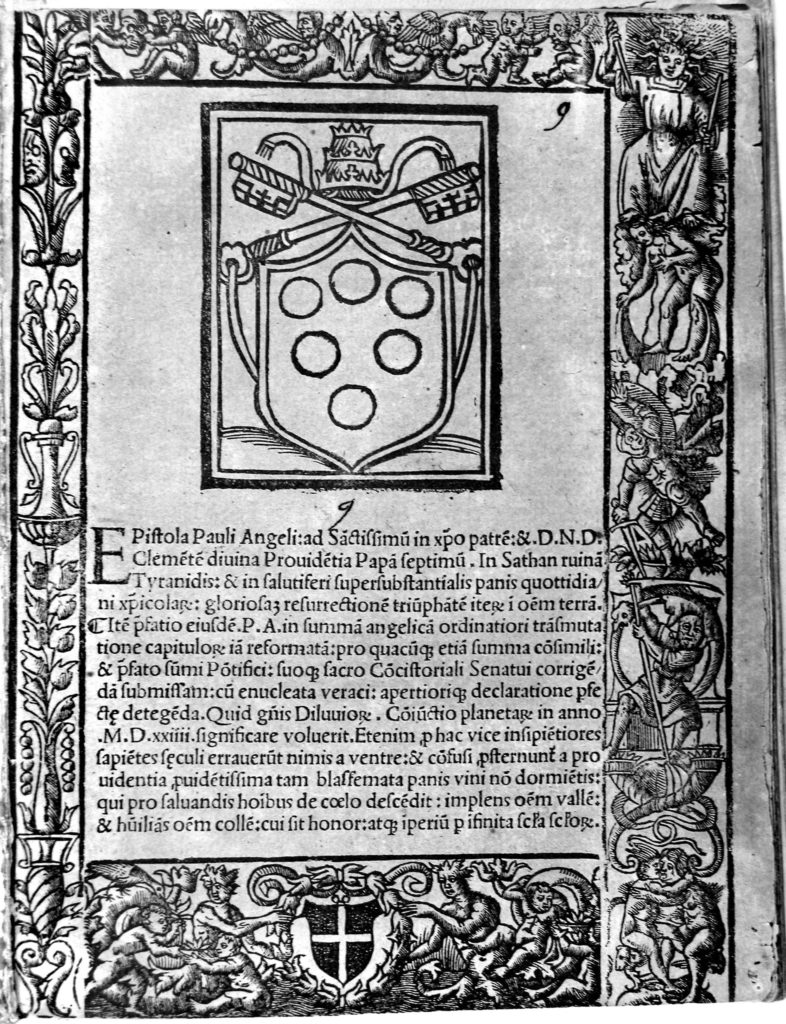 9
9
EPistola Pauli Angeli:ad Sãctissimũ in xp̃o patrẽ:&.D.N.D.
Clemẽtẽ diuina Prouidẽtia Papã septimũ. In Sathan ruinã
Tyranidis: & in salutiferi supersubstantialis panis quottidia/
ni xp̃icolaꝝ: gloriosaꝫ resurrectionẽ triũphãtẽ iteꝝ ĩ oẽm terrã.
¶Itẽ p̃fatio eiusdẽ.P.A.in summã angelicã ordinatiori trãsmuta
tione capituloꝝ iã reformatã:pro quacũqꝫ etiã summa cõsimili:
& p̃fato sũmi Põtifici: suoqꝫ sacro Cõcistoriali Senatui corrigẽ/
dã submissam:cũ enucleata veraci: apertioriqꝫ declaratione pfe
ctę detegẽda.Quid gñis Diluuioꝝ. Cõiũctio planetaꝝ in anno
.M.D.xxiiii.significare voluerit.Etenim ꝓ hac vice insipiẽtiores
sapiẽtes sęculi errauerũt nimis a ventre:& cõfusi ꝓsternunt̃ a pro
uidentia ꝓuidẽtissima tam blasfemata panis vini nõ dormiẽtis:
qui pro saluandis hoĩbus de cœlo descẽdit: implens oẽm vallẽ:
& hũiliãs oẽm collẽ:cui sit honor:atqꝫ ĩperiũ p ĩfinita